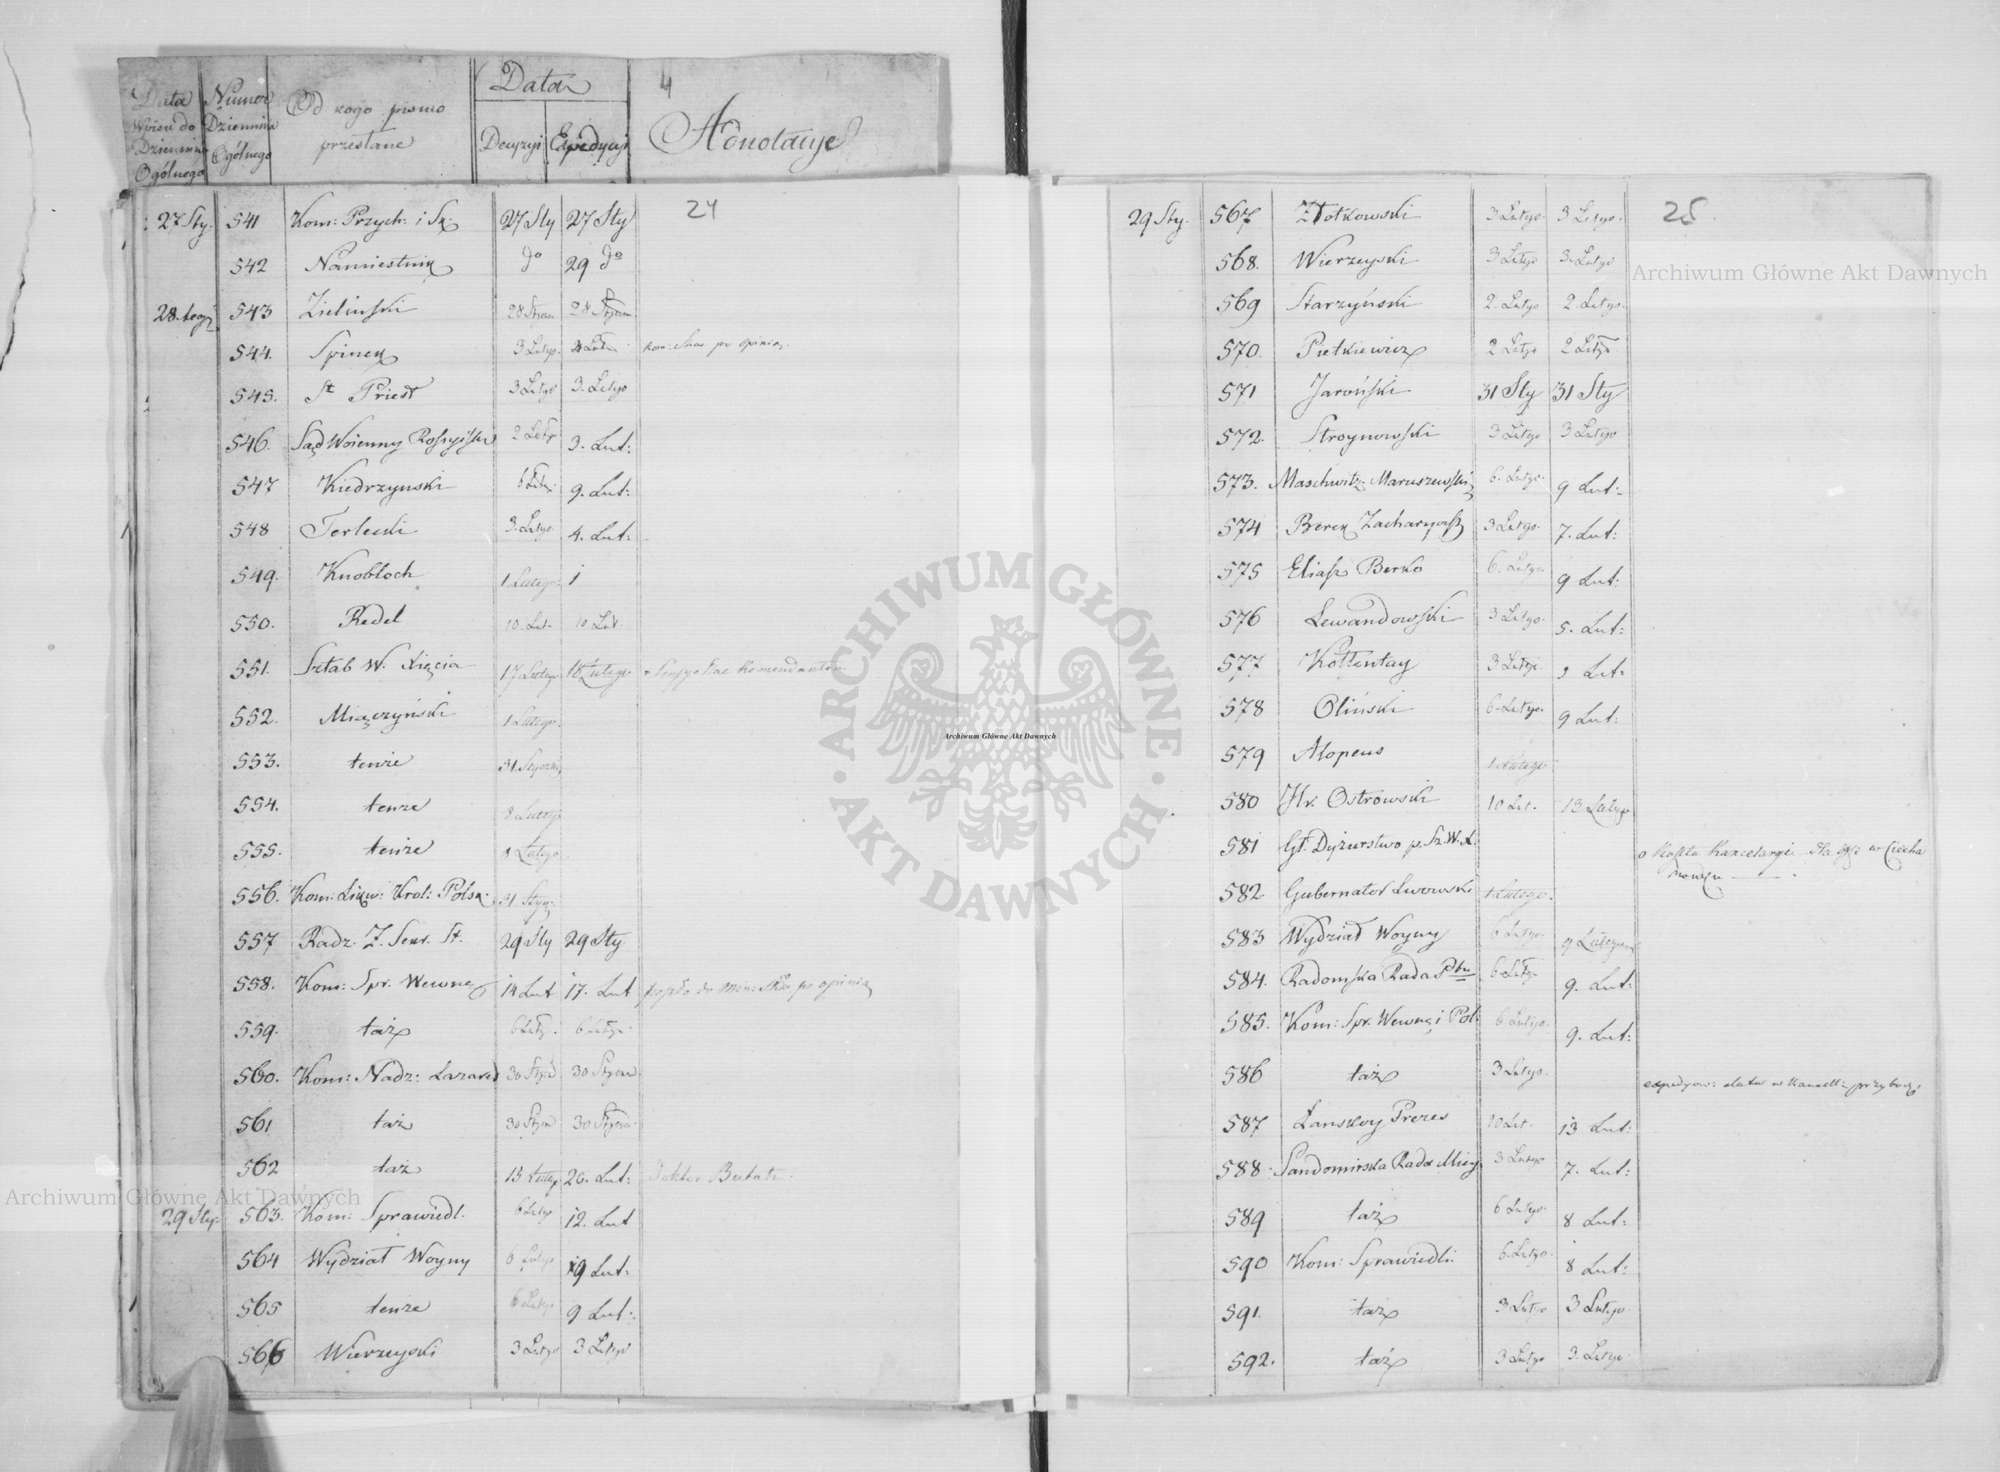 Data Wpisu do Dziennika Ogólnego
Numer Dziennika Ogólnego
Od kogo pismo przesłane
Data
Decyzyi Expedycyi
4
Adnotacye
24
27 Sty. 541 Kom: Przych: i Sk: 27 Sty 27 Sty
542 Namiestnik do 29 do
28. tegoż 543 Zieliński 28 Stycz 28 Stycz
544. Spinek 3 Lutgo. Kom: Skar po opinię.
545. St Priest 3 Lutgo 3. Lutgo
546. Sąd Woienny Rossyiski 2 Lutgo 3. Lut:
547 Kiedrzynski 6 Lutgo 9. Lut:
548 Terlecki 3. Lutgo 4. Lut:
549. Knobloch 1 Lutego 1
550. Redel 10. Lut. 10 Lut
551. Sztab W. Xięcia 17 Lutego 18 Lutego Komendantow
552. Miączyński 1 Lutego
553. tenże 31. Styczn
554. tenże 8 Lutego
555. tenże 8 Lutego
556. Kom: Likw: Krol: Polsk. 31 Stycz
557 Radz. Z. Sekr. St. 29 Sty 29 Sty
558. Kom: Spr. Wewnę 14 Lut 17. Lut poszło do Min: Skar po opinię
559. taż 6 Lutgo. 6 Lutgo
560. Kom: Nadz: Lazaret 30 Stycz 30 Stycz
561 taż 30 Stycz 30 Stycz
562 taż 13 Lutgo 26. Lut: Doktor
29 Sty. 563. Kom: Sprawiedl. 6 Lutgo 12. Lut
564 Wydział Woyny 6 Lutgo 9 Lut:
565 tenże 6 Lutgo 9 Lut:
566 Wierzeyski 3 Lutgo 3 Lutgo
25.
29 Sty. 567 Złotkowski 3 Lutgo. 3 Lutgo.
568. Wierzeyski 3 Lutgo 3. Lutgo
569 Starzyński 2. Lutgo 2 Lutgo.
570. Pietkiewicz 2 Lutgo 2 Lutgo
571 Jaroński 31 Sty 31 Sty
572. Stroynowski 3 Lutgo 3 Lutgo
573. Maschwitz Maruszewski 6. Lutgo. 9 Lut:
574 Berek 3 Lutgo. 7. Lut:
575 Eliasz Berko 6. Lutgo. 9 Lut:
576 Lewandowski 3 Lutgo. 5. Lut:
577 Kołłontay 3 Lutgo. Lut:
578 Oliński 6 Lutgo. 9 Lut:
579 Alopeus 1 Lutego
580 Hr. Ostrowski 10 Lut. 13 Lutgo
581 Gł. Dyżurstwo p. Sz. W. X. o Koszta Kancelaryi dla w Ciecha
nowcu
582 Gubernator Lwowski 1 Lutego.
583 Wydział Woyny 6 Lutgo. 9 Lutego
584. Radomska Rada 6 Lutgo 9. Lut:
585. Kom: Spr. Wewnę i Pol: 6 Lutgo. 9. Lut:
586 taż 3 Lutgo. expedyow: data w Kancell:
587 Łanskoy Prezes 10 Lut. 13 Lut:
588. Sandomirska Rada Miey 3 Lutgo 7. Lut:
589 taż 6 Lutgo. 8 Lut:
590 Kom: Sprawiedli: 6 Lutgo. 8 Lut:
591. taż 3 Lutgo 3 Lutgo.
592. taż 3 Lutgo 3. Lutgo
Archiwum Główne Akt Dawnych
Archiwum Główne Akt Dawnych
Archiwum Główne Akt Dawnych
ARCHIWUM GŁÓWNE · AKT DAWNYCH ·